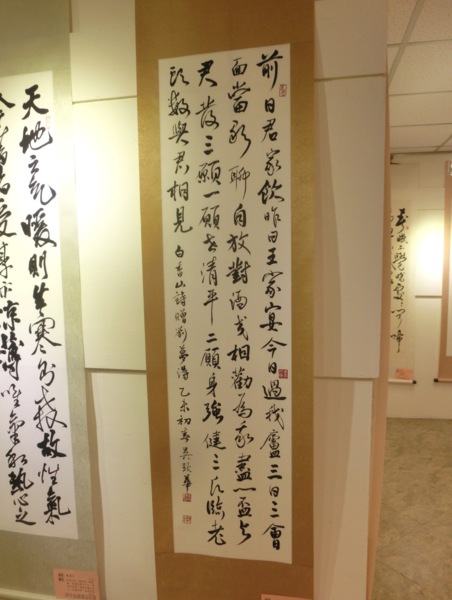 前日君家飲昨日王家宴今日過我廬三日三會
面當歌聊自放對酒交相勸為我盡一盃與
君發三願一願世清平二願身強健三願臨老
頭數與君相見 白香山詩贈劉夢得 乙未初春
天地之氣暖則生寒則殺故性氣
受享亦涼薄唯和熱心之